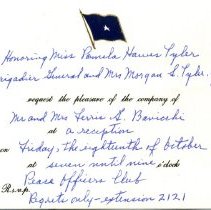 Honoring Miss Pamela Hawes Tyler
Brigadier General and Mrs Morgan S. Tyler, Jr
request the pleasure of the company of
Mr and Mrs Ferris S. Bavicchi
at a reception
on Friday, the eighteenth of October
at seven until nine o'clock
Pease Officers Club
R.s.v.p.
Regrets only-extension 2121